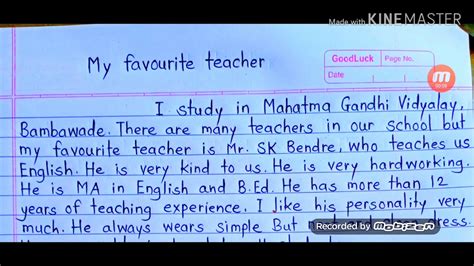 Made with KINEMASTER
GoodLuck
Page No.
Date
My favourite teacher
I study in Mahatma Gandhi Vidyalay,
Bambawade. There are many teachers in our school but
my favourite teacher is Mr. SK Bendre, who teaches us
English. He is very kind to us. He is very hardworking.
He is MA in English and B.Ed. He has more than 12
years of teaching experience. I like his personality very
much. He always wears simple But dress.
Recorded by MOBIZEN